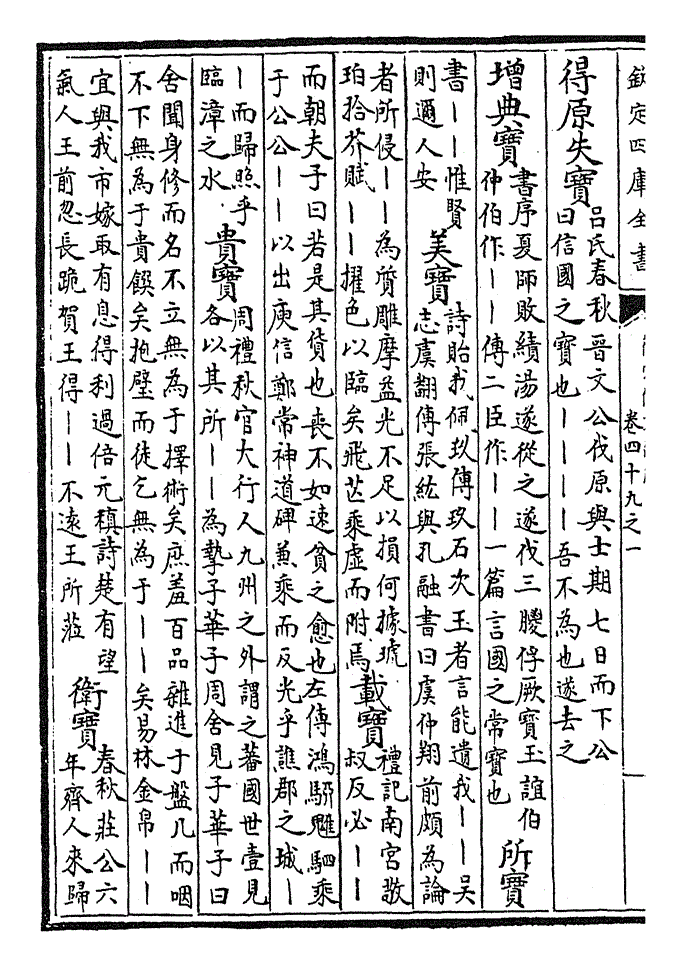 欽定四庫全書
卷四十九之一
得原失寶 吕氏春秋晉文公伐原與士期七日而下公
曰信國之寶也｜｜｜｜吾不為也遂去之
增典寶 書序夏師敗績湯遂從之遂伐三朡俘厥寶玉誼伯
仲伯作｜｜傳二臣作｜｜一篇言國之常寶也 所寶
書｜｜惟賢
則邇人安 美寶 詩貽我佩玖傳玖石次玉者言能遺我｜｜吴
志虞翻傳張紘與孔融書曰虞仲翔前頗為論
者所侵｜｜為質雕摩益光不足以損何據琥
珀拾芥賦｜｜擢色以臨矣飛芒乘虚而附焉 載寶 禮記南宫敬
叔反必｜｜
而朝夫子曰若是其貨也喪不如速貧之愈也左傳鴻駵魋駟乘
于公公｜｜以出庾信鄭常神道碑兼乘而反光乎譙郡之城｜
｜而歸照乎
臨漳之水 貴寶 周禮秋官大行人九州之外謂之蕃國世壹見
各以其所｜｜為摯子華子周舍見子華子曰
舍聞身修而名不立無為于擇術矣庶羞百品雜進于盤几而咽
不下無為于貴饌矣抱璧而徒乞無為于｜｜矣易林金帛｜｜
宜與我市嫁取有息得利過倍元稹詩楚有望
氣人王前忽長跪賀王得｜｜不遠王所蒞 衛寶 春秋莊公六
年齊人來歸